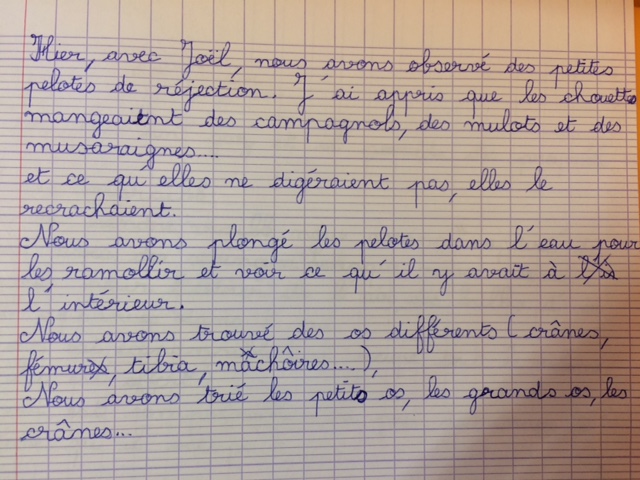 Hier, avec Joël, nous avons observé des petites
pelotes de réjection. J'ai appris que les chouettes
mangeaient des campagnols, des mulots et des
musaraignes....
et ce qu'elles ne digéraient pas, elles le
recrachaient.
Nous avons plongé les pelotes dans l'eau pour
les ramollir et voir ce qu'il y avait à
l'intérieur.
Nous avons trouvé des os différents (crânes,
fémurs, tibia, mâchoires....),
Nous avons trié les petits os, les grands os, les
crânes...